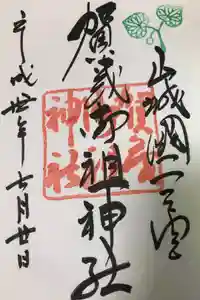 山城國一之宮
賀茂御祖神社
平成卅年 月廿日
賀茂
御祖
神社